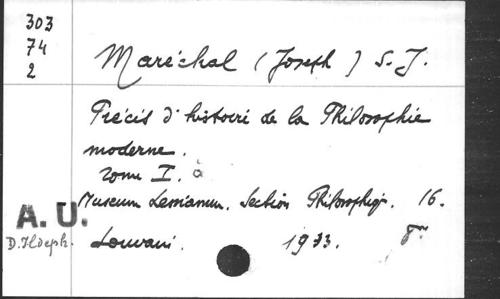 303
74
2
Maréchal (Joseph) S.J.
Précis d'histoire de la Philosophie
moderne.
Tome I. à
Museum Lessianum. Section Philosophiq. 16.
A. U.
D. Hoeph. Louvain. 1933. 8°